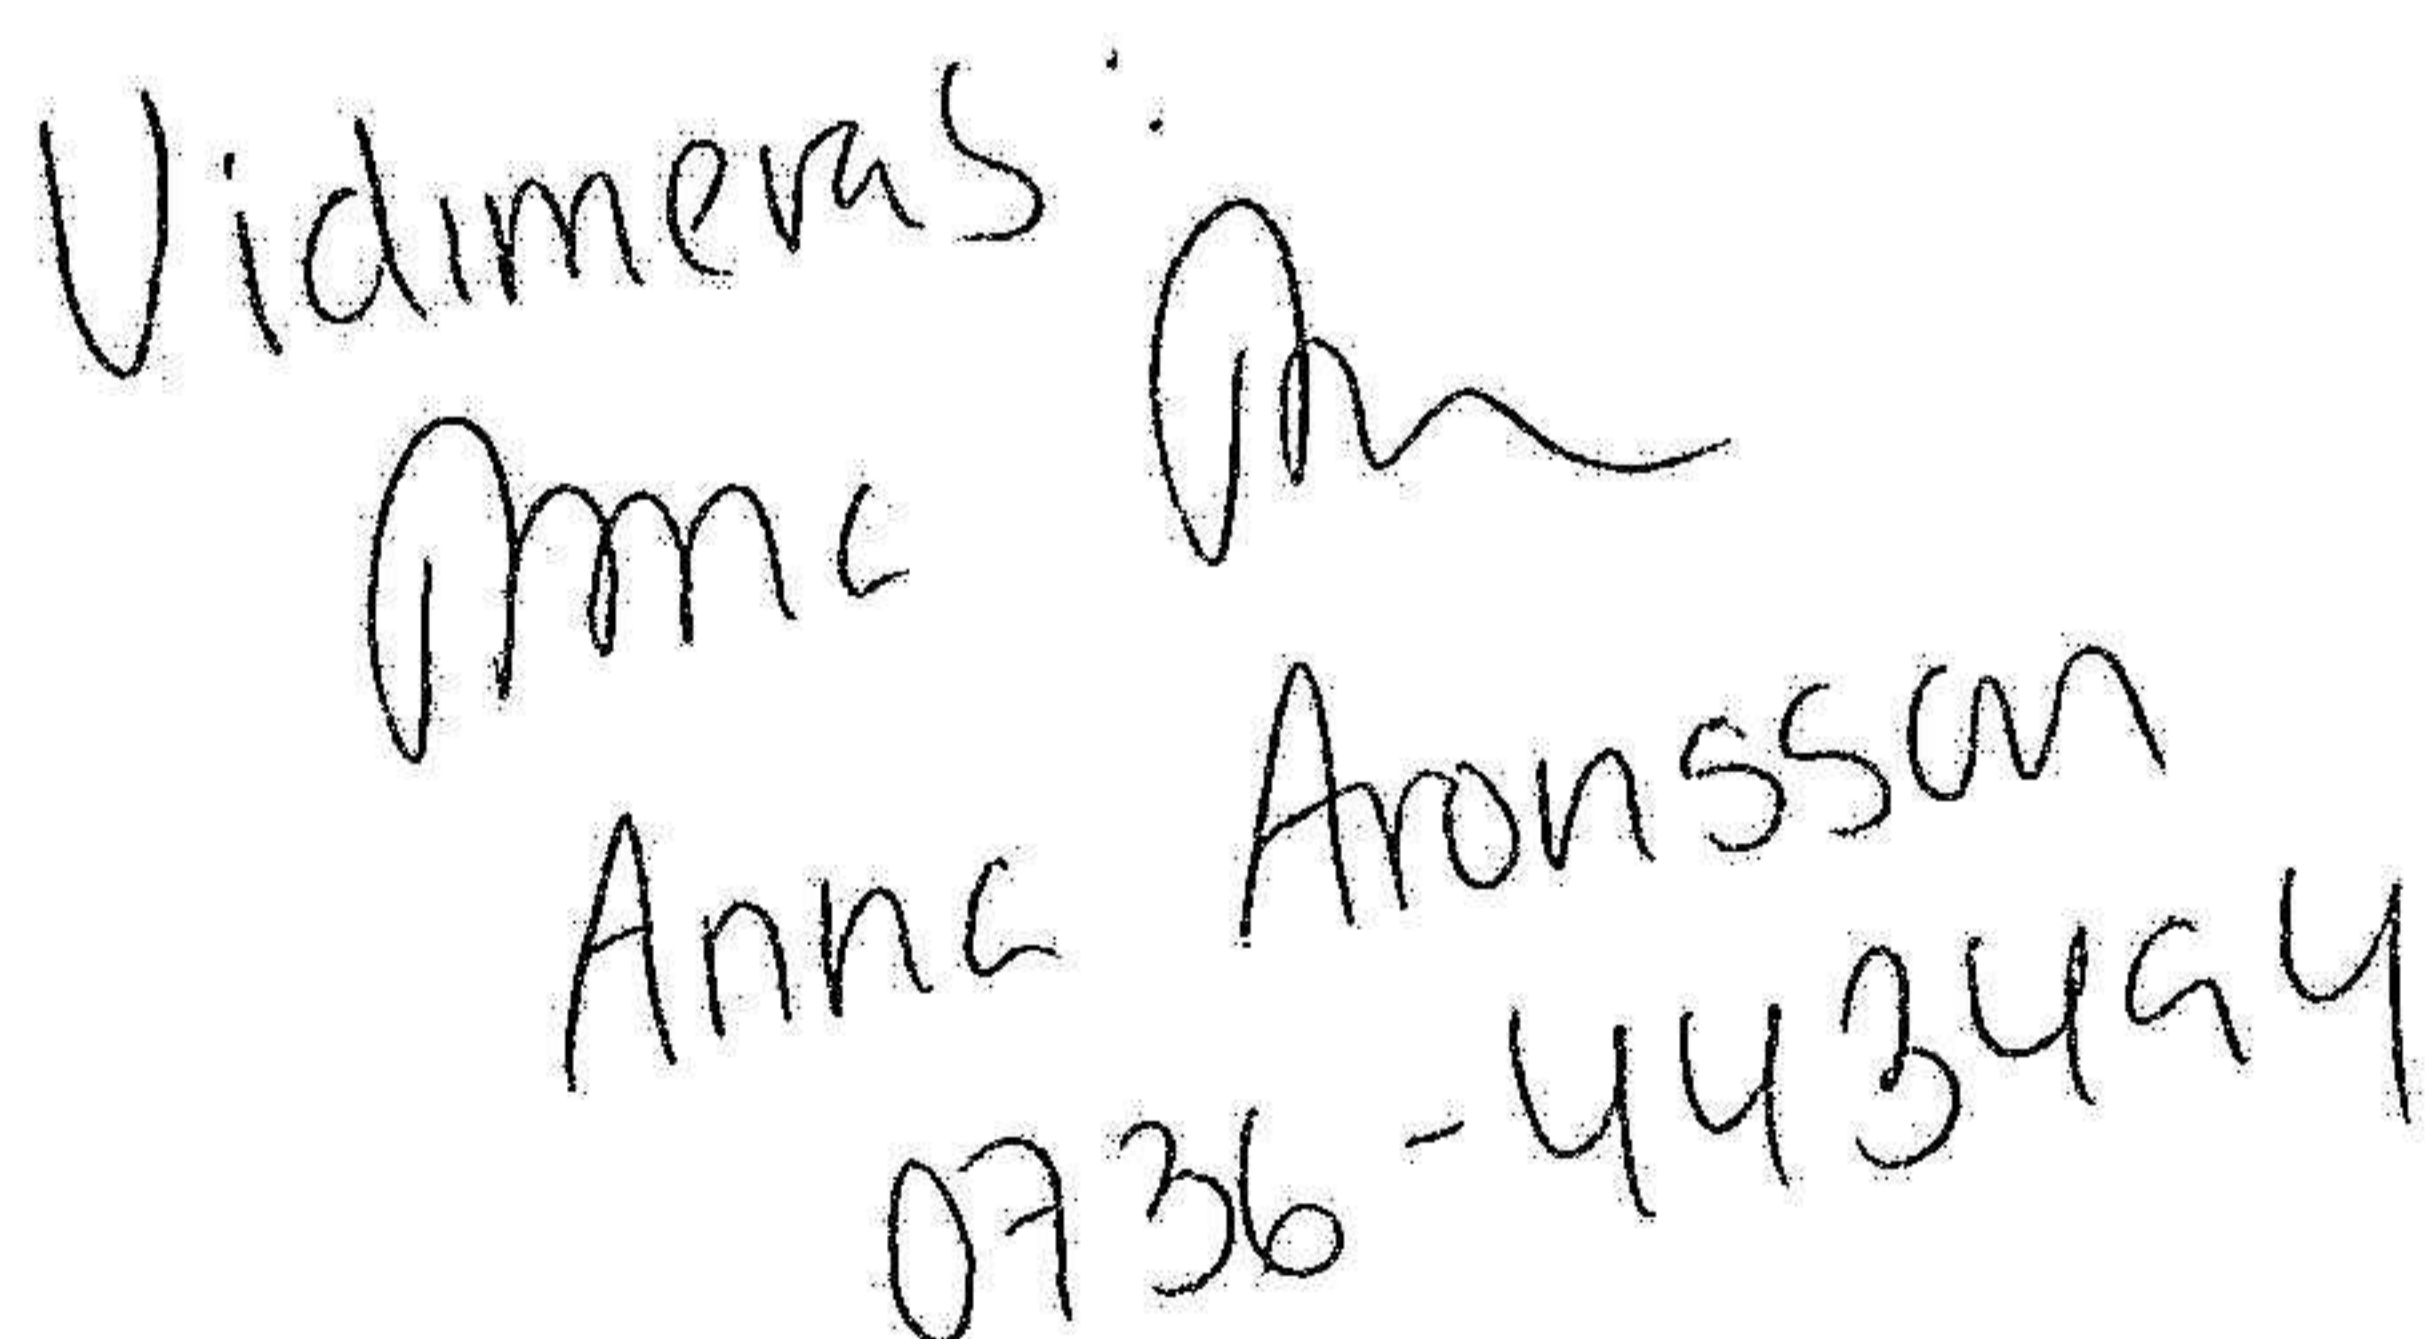 Vidimeras:
Anna
Anna Aronsson
0736-443494